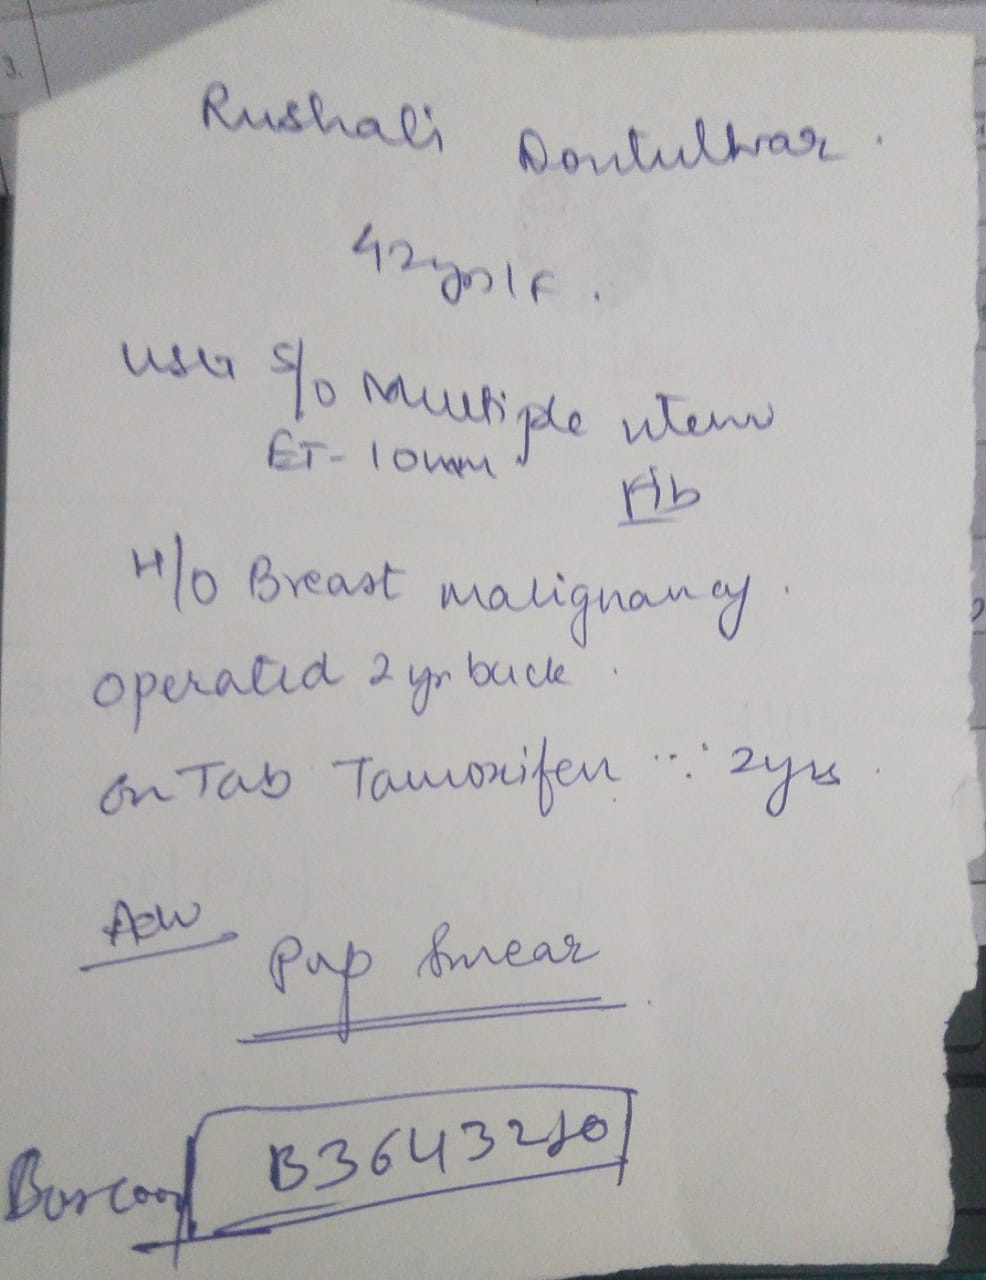 Rushali Dontulwar.
42yrs/F.
USG S/O Multiple uterine
ET-10mm
Fib
H/O Breast malignancy.
operated 2 yr back.
on Tab Tamoxifen ∴ 2yrs.
Adv
Pap Smear
B3643210